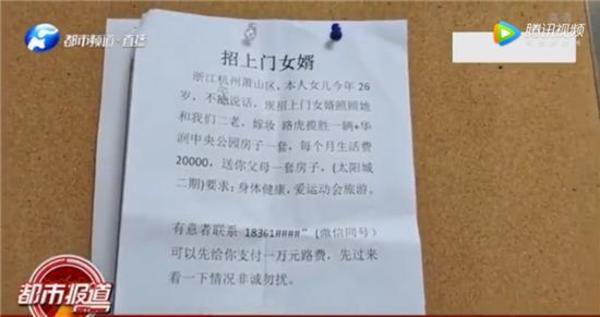 都市频道·直播
腾讯视频
招上门女婿
浙江杭州萧山区,本人女儿今年26
岁,不能说话,现招上门女婿照顾她
和我们二老,嫁妆 路虎揽胜一辆+华
润中央公园房子一套,每个月生活费
20000,送你父母一套房子,(太阳城
二期)要求:身体健康,爱运动会旅游。
有患者联系 18361####"(微信同号)
可以先给你支付一万元路费,先过来
看一下情况非诚勿扰。
都市报道